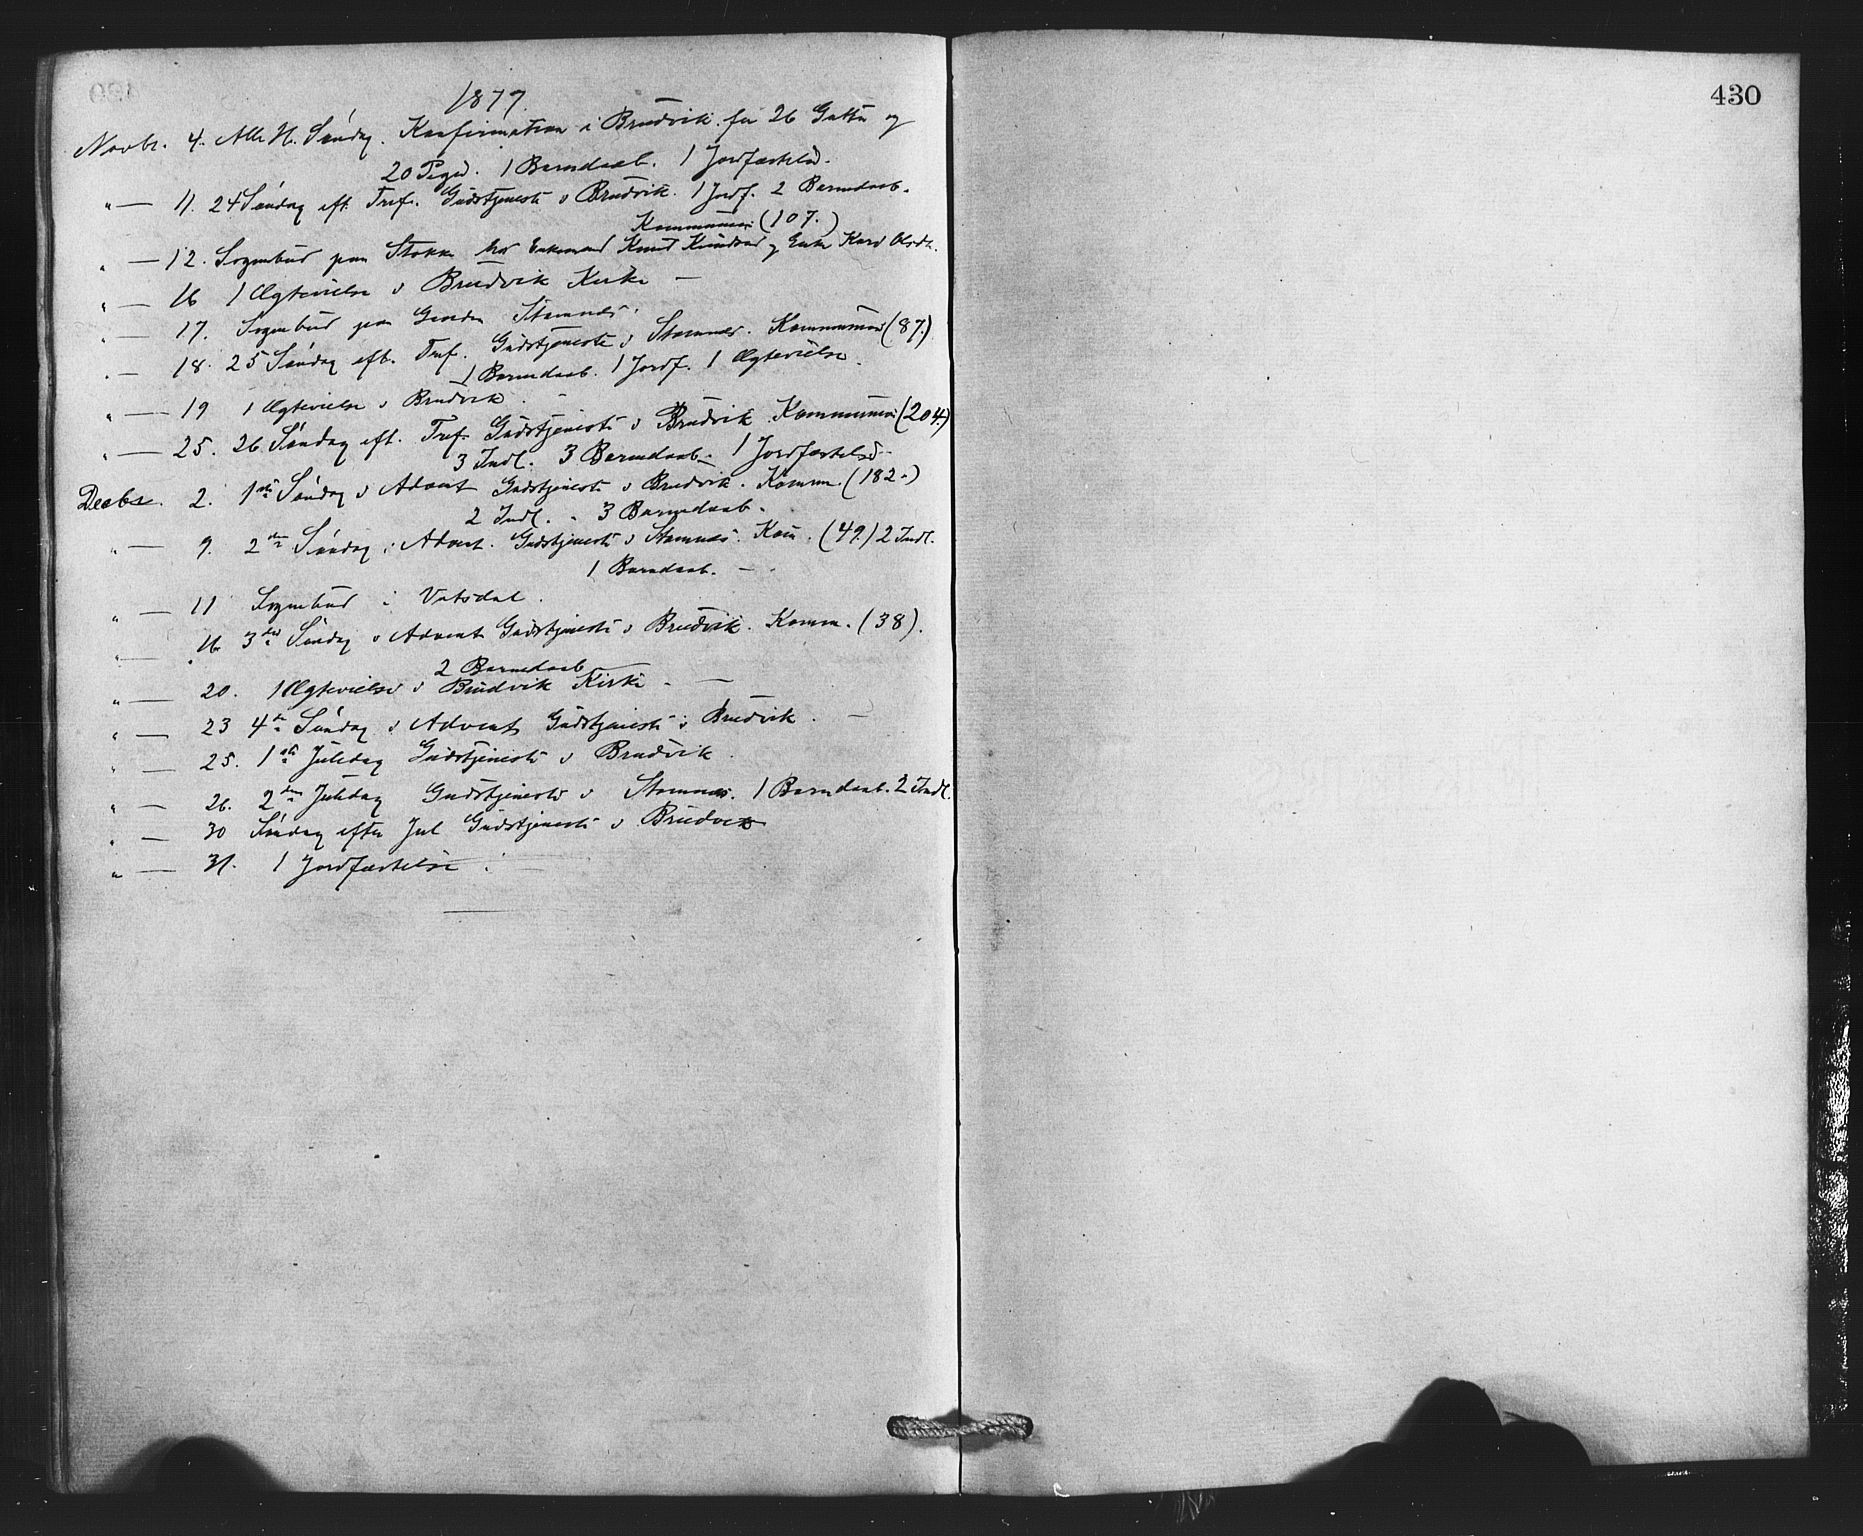 1877.
Novbr. 4. Alle H. Søndag. Konfirmation i Brudvik for 26 Gutter og
20 Piger. 1 Barndaab. 1 Jordfæstelse.
" — 11. 24 Søndag eft. Tref. Gudstjeneste i Brudvik. 1 Jordf. 2 Barndaab.
Kommunion (107.)
" — 12. Sognebud paa Stokke hos Enkemand Knud Knudsen og Enke Kari Olsdr.
" — 16 1 Ægtevielse i Brudvik Kirke —
" — 17. Sognebud paa Stamnes.
" — 18. 25 Søndag eft. Tref. Gudstjeneste i Stamnes. Kommunion (87.)
1 Barndaab. 1 Jordf. 1 Ægtevielse.
" — 19 1 Ægtevielse i Brudvik. -
" — 25. 26 Søndag eft. Tref. Gudstjeneste i Brudvik Kommunion (204.)
3 Indl. 3 Barndaab. 1 Jordfæstelse. -
Decbr. 2. 1ste Søndag i Advent Gudstjeneste i Brudvik. Komm. (182.)
2 Indl. - 3 Barndaab.
" — 9. 2den Søndag i Advent. Gudstjeneste i Stamnes. Kom. (49.) 2 Indl.
1 Barndaab. —
" — 11 Sognebud i Vatsdal.
" — 16. 3die Søndag i Advent Gudstjeneste i Brudvik. Komm. (38).
2 Barndaab
" — 20. 1 Ægtevielse i Brudvik Kirke - —
" — 23 4de Søndag i Advent Gudstjeneste i Brudvik. —
" — 25. 1ste Juledag Gudstjeneste i Brudvik.
" — 26. 2den Juledag Gudstjeneste i Stamnes. 1 Barndaab. 2 Indl.
" — 30 Søndag efter Jul Gudstjeneste i Brudvik
" — 31. 1 Jordfæstelse. —
430